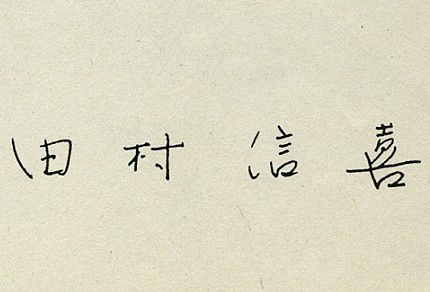 田村信喜